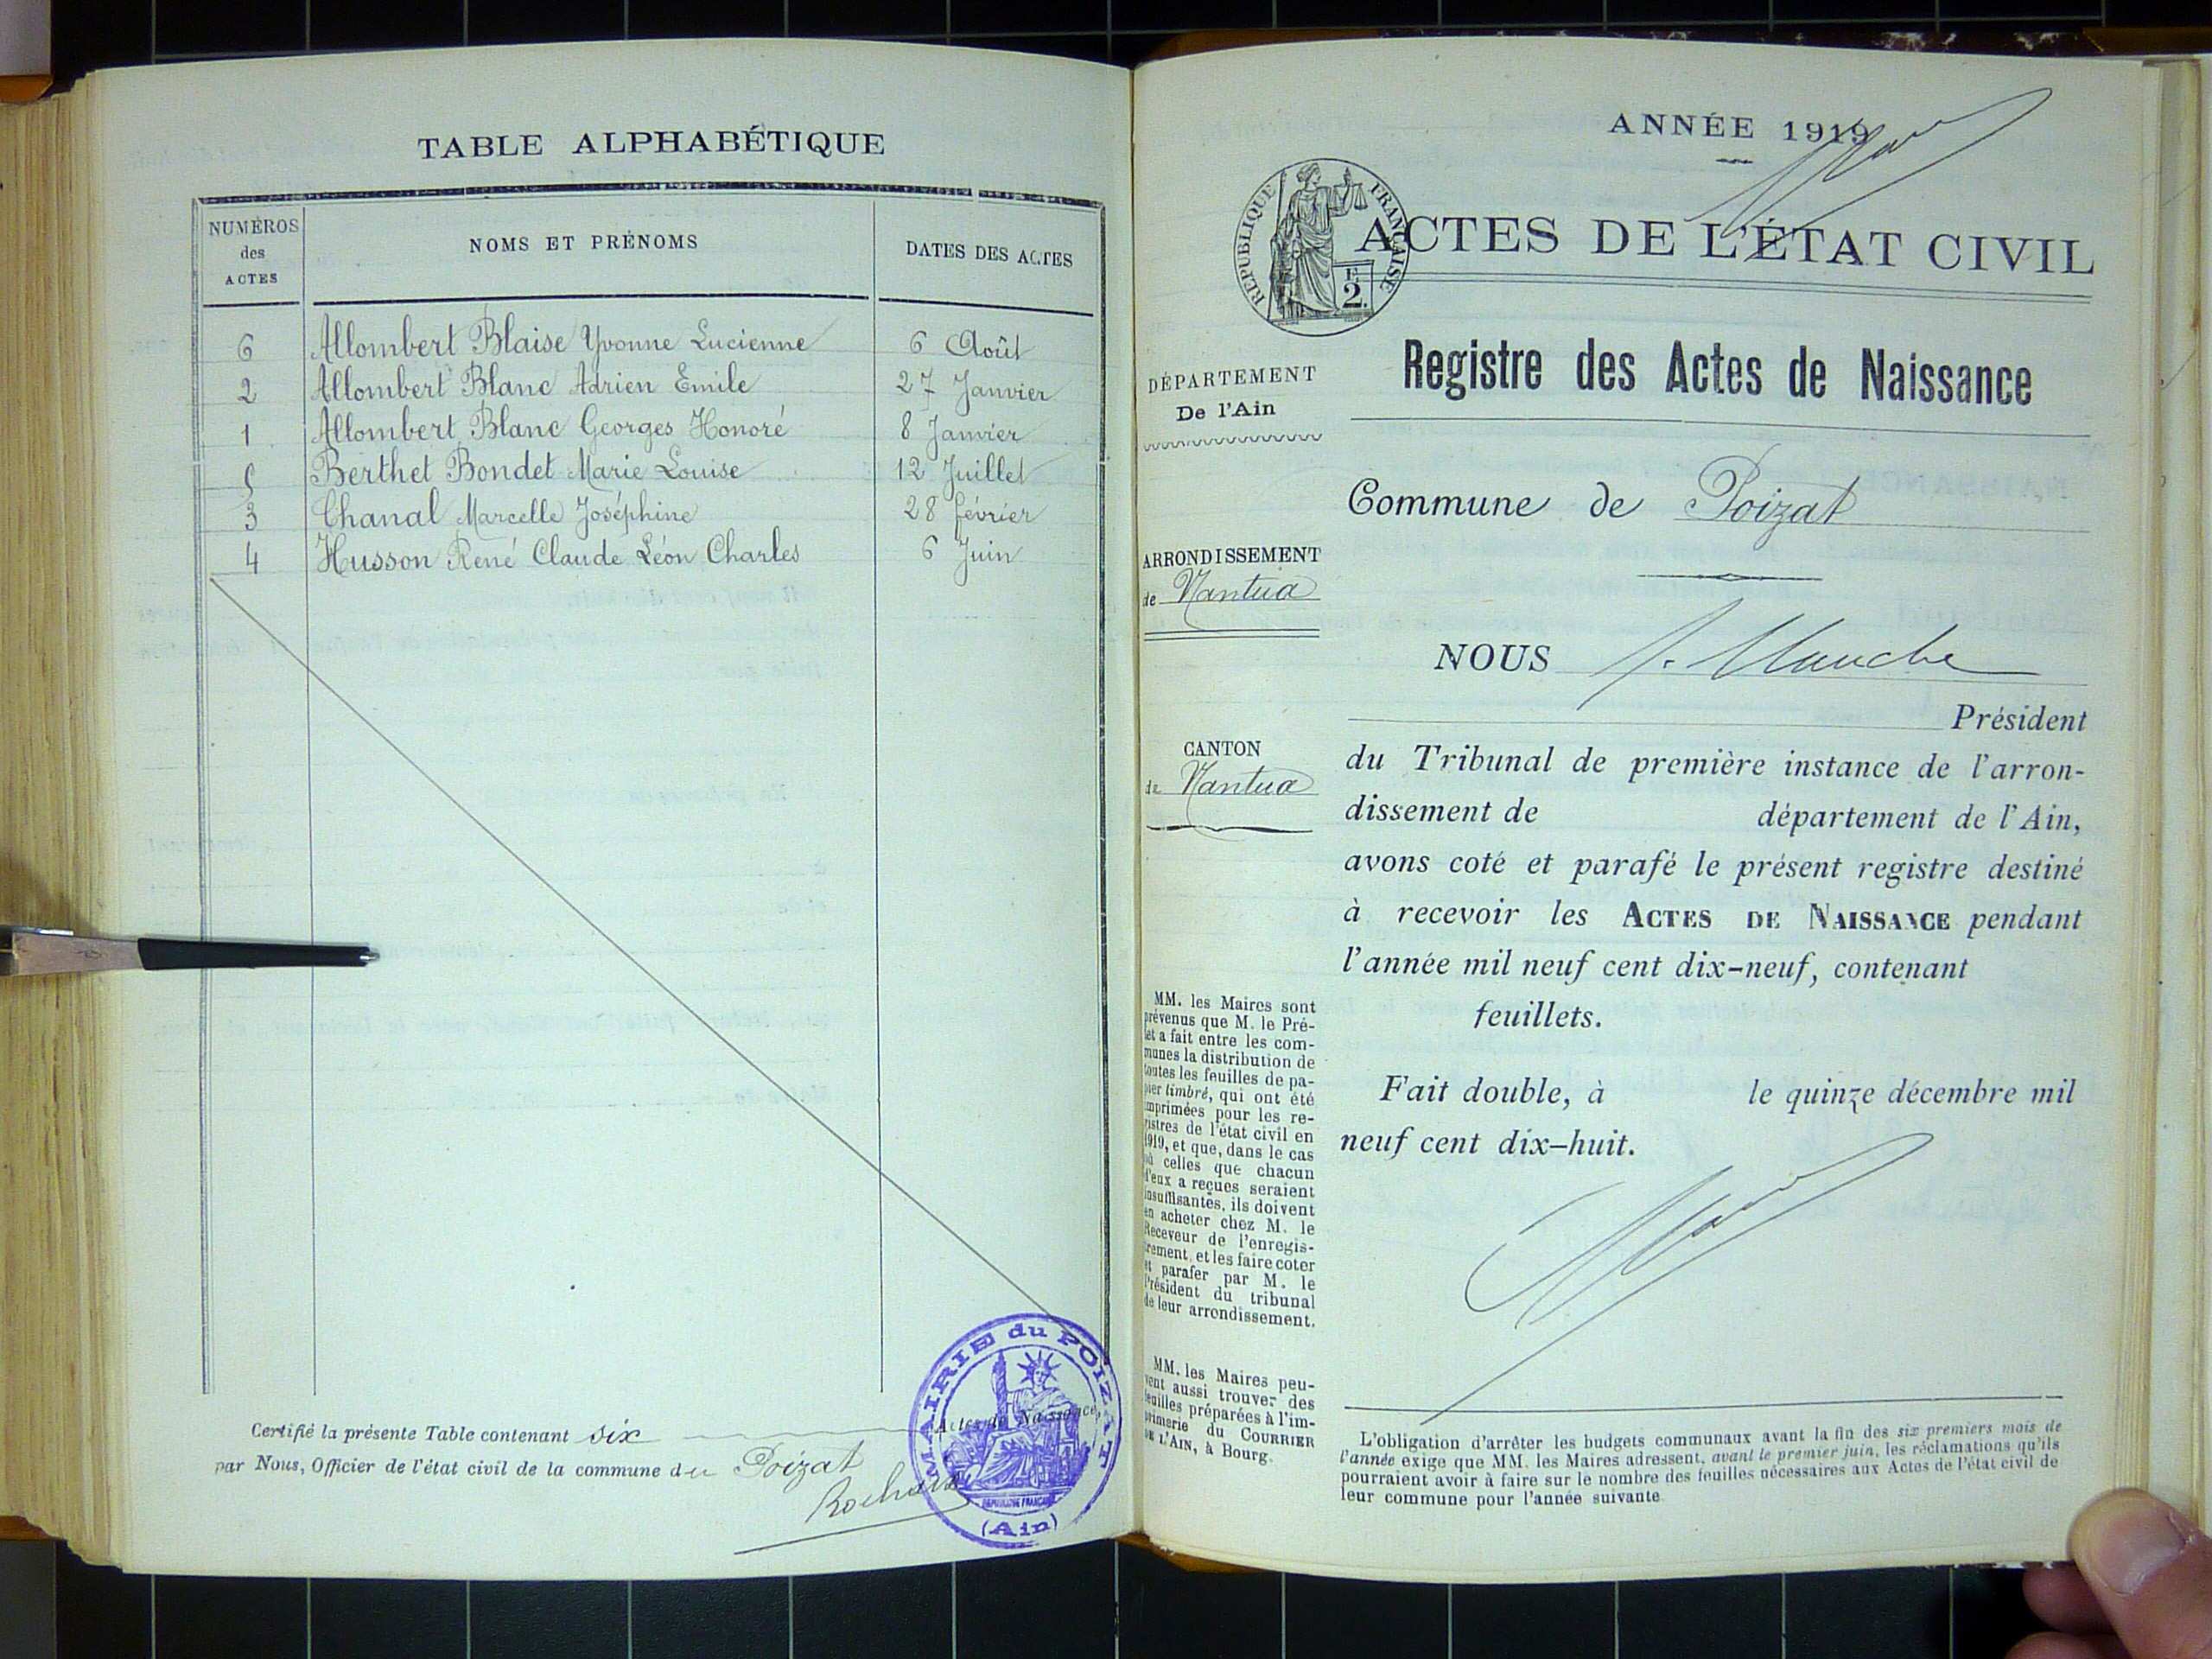 TABLE ALPHABÉTIQUE
NUMÉROS
des
ACTES
NOMS ET PRÉNOMS
DATES DES ACTES
6 Allombert Blaise Yvonne Lucienne 6 Août
2 Allombert Blanc Adrien Emile 27 Janvier
1 Allombert Blanc Georges Honoré 8 Janvier
5 Berthet Bondet Marie Louise 12 Juillet
3 Chanal Marcelle Joséphine 28 février
4 Husson René Claude Léon Charles 6 Juin
Certifié la présente Table contenant six Actes de Naissance,
par Nous, Officier de l'état civil de la commune du Poizat
MAIRIE du POIZAT
RÉPUBLIQUE FRANÇAISE
(Ain)
ANNÉE 1919
RÉPUBLIQUE FRANÇAISE
2
ACTES DE L'ÉTAT CIVIL
Registre des Actes de Naissance
DÉPARTEMENT
De l'Ain
Commune de Poizat
ARRONDISSEMENT
de Nantua
NOUS
Président
CANTON
de Nantua
du Tribunal de première instance de l'arron-
dissement de département de l'Ain,
avons coté et parafé le présent registre destiné
à recevoir les ACTES DE NAISSANCE pendant
l'année mil neuf cent dix-neuf, contenant
feuillets.
Fait double, à le quinze décembre mil
neuf cent dix-huit.
MM. les Maires sont
prévenus que M. le Pré-
fet a fait entre les com-
munes la distribution de
toutes les feuilles de pa-
pier timbré, qui ont été
imprimées pour les re-
gistres de l'état civil en
1919, et que, dans le cas
où celles que chacun
d'eux a reçues seraient
insuffisantes, ils doivent
en acheter chez M. le
Receveur de l'enregis-
trement, et les faire coter
et parafer par M. le
Président du tribunal
de leur arrondissement.
MM. les Maires peu-
vent aussi trouver des
feuilles préparées à l'im-
primerie du COURRIER
DE L'AIN, à Bourg.
L'obligation d'arrêter les budgets communaux avant la fin des six premiers mois de
l'année exige que MM. les Maires adressent, avant le premier juin, les réclamations qu'ils
pourraient avoir à faire sur le nombre des feuilles nécessaires aux Actes de l'état civil de
leur commune pour l'année suivante.